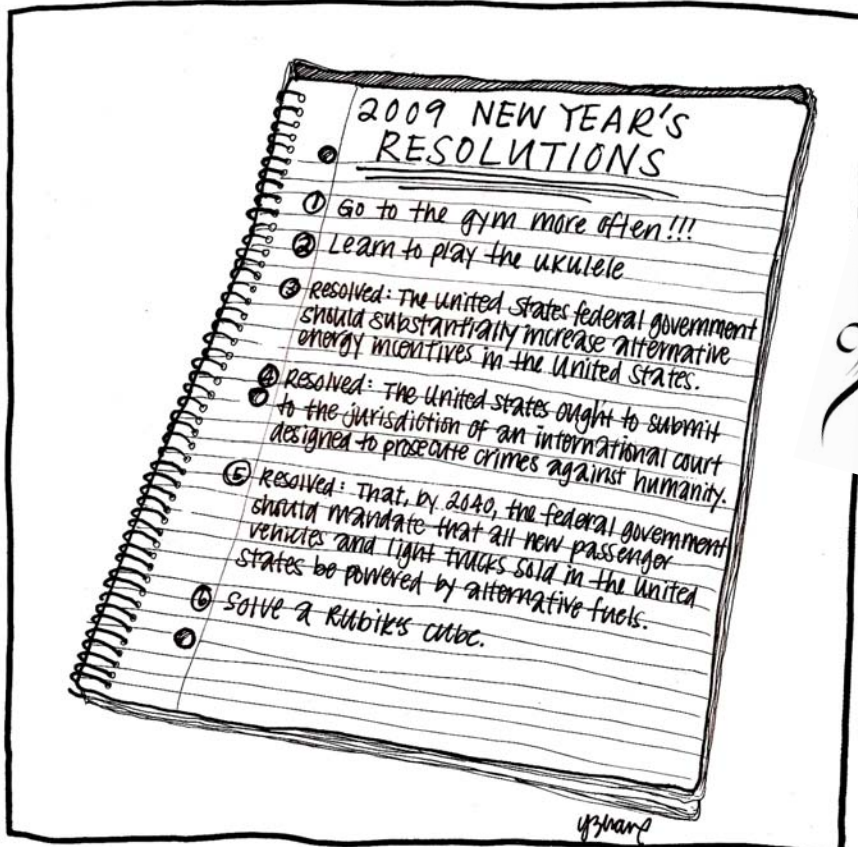 2009 NEW YEAR'S
RESOLUTIONS
① Go to the gym more often!!!
② Learn to play the ukulele
③ Resolved: The United States federal government
should substantially increase alternative
energy incentives in the United States.
④ Resolved: The United States ought to submit
to the jurisdiction of an international court
designed to prosecute crimes against humanity.
⑤ Resolved: That, by 2040, the federal government
should mandate that all new passenger
vehicles and light trucks sold in the United
States be powered by alternative fuels.
⑥ Solve a Rubik's cube.